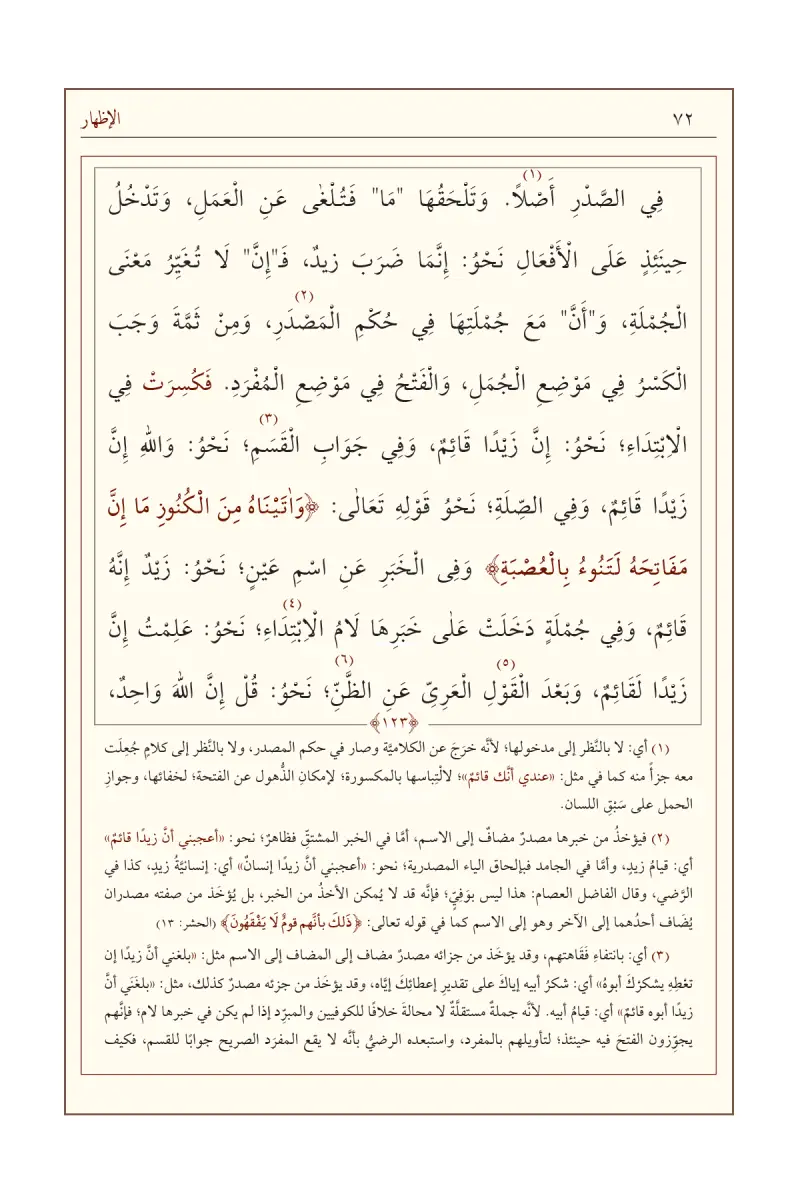 ٧٢ الإظهار
فِي الصَّدْرِ أَصْلًا(١). وَتَلْحَقُهَا "مَا" فَتُلْغٰى عَنِ الْعَمَلِ، وَتَدْخُلُ
حِينَئِذٍ عَلَى الْأَفْعَالِ نَحْوُ: إِنَّمَا ضَرَبَ زيدٌ، فَـ"إِنَّ" لَا تُغَيِّرُ مَعْنَى
الْجُمْلَةِ، وَ"أَنَّ" مَعَ جُمْلَتِهَا فِي حُكْمِ الْمَصْدَرِ(٢)، وَمِنْ ثَمَّةَ وَجَبَ
الْكَسْرُ فِي مَوْضِعِ الْجُمَلِ، وَالْفَتْحُ فِي مَوْضِعِ الْمُفْرَدِ. فَكُسِرَتْ فِي
الْاِبْتِدَاءِ؛ نَحْوُ: إِنَّ زَيْدًا قَائِمٌ، وَفِي جَوَابِ الْقَسَمِ(٣)؛ نَحْوُ: وَاللهِ إِنَّ
زَيْدًا قَائِمٌ، وَفِي الصِّلَةِ؛ نَحْوُ قَوْلِهِ تَعَالٰى: ﴿وَاٰتَيْنَاهُ مِنَ الْكُنُوزِ مَا إِنَّ
مَفَاتِحَهُ لَتَنُوءُ بِالْعُصْبَةِ﴾ وَفِى الْخَبَرِ عَنِ اسْمِ عَيْنٍ؛ نَحْوُ: زَيْدٌ إِنَّهُ
قَائِمٌ، وَفِي جُمْلَةٍ دَخَلَتْ عَلٰى خَبَرِهَا لَامُ الْاِبْتِدَاءِ(٤)؛ نَحْوُ: عَلِمْتُ إِنَّ
زَيْدًا لَقَائِمٌ، وَبَعْدَ الْقَوْلِ(٥) الْعَرِىِّ عَنِ الظَّنِّ(٦)؛ نَحْوُ: قُلْ إِنَّ اللهَ وَاحِدٌ،
﴿١٢٣﴾
(١) أي: لا بالنَّظر إلى مدخولها؛ لأنَّه خرَجَ عن الكلاميَّة وصار في حكم المصدر، ولا بالنَّظر إلى كلامٍ جُعِلَت
معه جزأً منه كما في مثل: «عندي أنَّك قائمٌ»؛ لالْتِباسها بالمكسورة؛ لإمكانِ الذُّهول عن الفتحة؛ لخفائها، وجوازِ
الحمل على سَبْقِ اللسان.
(٢) فيؤخذُ من خبرها مصدرٌ مضافٌ إلى الاسم، أمَّا في الخبر المشتقِّ فظاهرٌ؛ نحو: «أعجبني أنَّ زيدًا قائمٌ»
أي: قيامُ زيدٍ، وأمَّا في الجامد فبإلحاق الياء المصدرية؛ نحو: «أعجبني أنَّ زيدًا إنسانٌ» أي: إنسانيَّةُ زيدٍ، كذا في
الرَّضي، وقال الفاضل العصام: هذا ليس بوَفِيٍّ؛ فإنَّه قد لا يُمكن الأخذُ من الخبر، بل يُؤخَذ من صفته مصدران
يُضَاف أحدُهما إلى الآخر وهو إلى الاسم كما في قوله تعالى: ﴿ذَلكَ بأنَّهم قومٌ لَا يَفْقَهُونَ﴾ (الحشر: ١٣)
(٣) أي: بانتفاءِ فَقَاهتهم، وقد يؤخَذ من جزائه مصدرٌ مضاف إلى المضاف إلى الاسم مثل: «بلغني أنَّ زيدًا إن
تعْطِهِ يشكرْكَ أبوهُ» أي: شكرُ أبيه إياكَ على تقديرِ إعطائِكَ إيَّاه، وقد يؤخَذ من جزئه مصدرٌ كذلك، مثل: «بلغَنَي أنَّ
زيدًا أبوه قائمٌ» أي: قيامُ أبيه. لأنَّه جملةٌ مستقلَّةٌ لا محالةَ خلافًا للكوفيين والمبرِّد إذا لم يكن في خبرها لام؛ فإنَّهم
يجوِّزون الفتحَ فيه حينئذ؛ لتأويلهم بالمفرد، واستبعده الرضيُّ بأنَّه لا يقع المفرَد الصريح جوابًا للقسم، فكيف